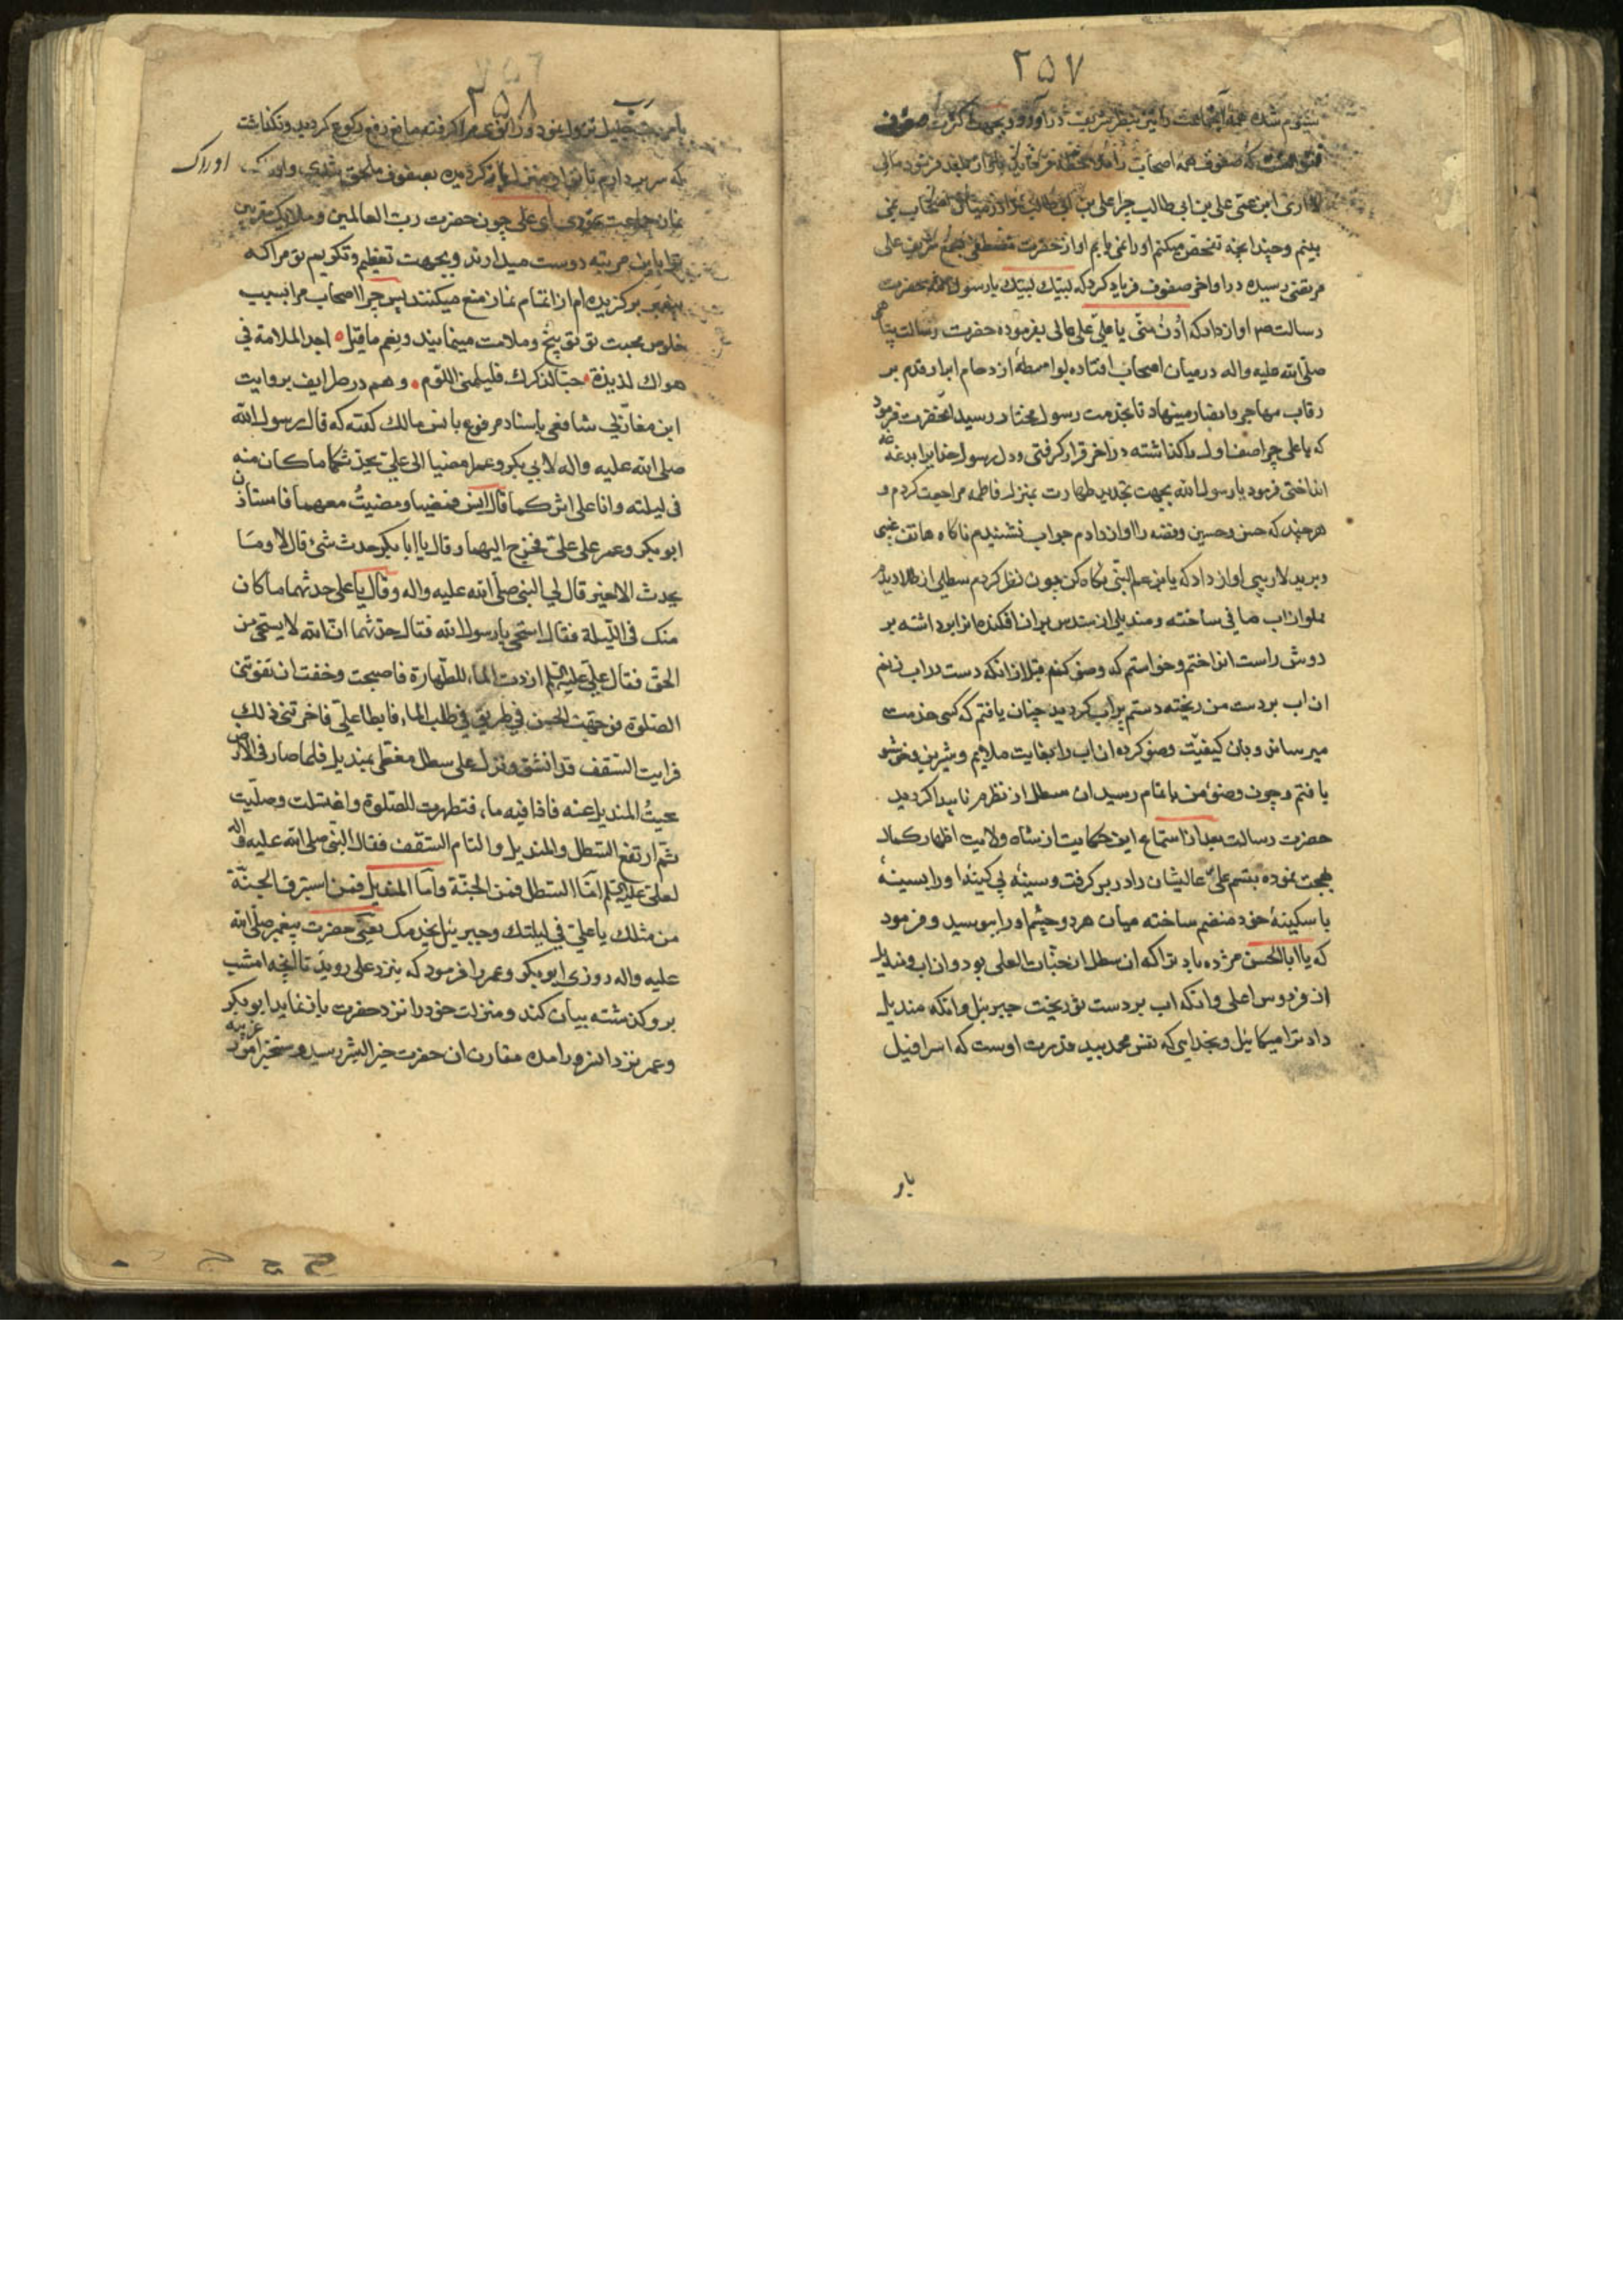 ۲۵۷
که صفوف همه اصحاب را
ابن عمی علی بن ابی طالب چرا علی بن ابی طالب را در میان اصحاب نمی
بینم و چندانچه تفحص میکنم او را نمی یابم اواز حضرت مصطفی بسمع شریف علی
مرتضی رسیده در اواخر صفوف فریاد کرد که لبیک لبیک یا رسول الله حضرت
رسالت اواز داد که ادن منی یا علی علی عالی بفرموده حضرت رسالت پناهی
صلی الله علیه واله در میان اصحاب افتاده بواسطهٔ ازدحام ابرار قدم بر
رقاب مهاجر و انصار مینهاد تا بخدمت رسول مختار رسید انحضرت فرمود
که یا علی چرا صف اول را گذاشته در آخر قرار گرفتی و دل رسول خدا برا بدغدغه
انداختی فرمود یا رسول الله بجهت تجدید طهارت بمنزل فاطمه مراجعت کردم و
هر چند که حسن و حسین و فضه را اواز دادم جواب نشنیدم ناکاه هاتف غیبی
و برید لاریبی اواز داد که یا بن عم النبی نکاه کن چون نظر کردم سطلی از طلا دیدم
مملو از اب صافی ساخته و مندیلی از سندس بر ان افکنده انرا برداشته بر
دوش راست انداختم و خواستم که وضو کنم قبل از انکه دست در اب زنم
ان اب بر دست من ریخته دستم پر اب کردید چنان یافتم که کسی خدمت
میرساند و بان کیفیت وضو کرده ان اب را بغایت ملایم و شیرین و خوشبو
یافتم و چون وضوء من باتمام رسید ان سطل از نظرم ناپیدا کردید
حضرت رسالت بعد از استماع این حکایت از شاه ولایت اظهار کمال
بهجت نموده تبسم علی عالیشان را در بر کرفت و سینه بی کینه او را بسینهٔ
با سکینهٔ خود منضم ساخته میان هر دو چشم او را ببوسید و فرمود
که یا ابا الحسن مژده باد ترا که ان سطل از جنات العلی بود و ان اب و مندیل
از فردوس اعلی و انکه اب بر دست تو ریخت جبرئیل و انکه مندیل
داد ترا میکائیل و بخدایی که نفس محمد بید قدرت اوست که اسرافیل
بار
۲۵۸
بامر رب جلیل نزول نموده زانوی مرا کرفته مانع رفع رکوع کردید و نکذاشت
که سر بردارم تا تو از منزل باز کردیده بصفوف ملحق شدی و ادراک
ادراک
نماز جماعت نمودی ای علی چون حضرت رب العالمین و ملایک مقربین
ترا باین مرتبه دوست میدارند و بجهت تعظیم و تکریم تو مرا که
پیغمبر برکزیده ام از اتمام نماز منع میکنند پس چرا اصحاب مرا بسبب
خلوص محبت تو توبیخ و ملامت مینمایند و نعم ما قیل اجد الملامة فی
هواک لذیذة حبا لذکرک فلیلمنی اللوم و هم در طرایف بروایت
ابن مغازلی شافعی باسناد مرفوع بانس مالک کفته که قال رسول الله
صلی الله علیه واله لابی بکر و عمر امضیا الی علی یحدثکما ما کان منه
فی لیلته و انا علی اثرکما قال انس فمضیا ومضیتُ معهما فاستاذن
ابو بکر وعمر علی علی فخرج الیهما وقال یا ابا بکر حدث شیٔ قال لا وما
یحدث الا خیر قال لی النبی صلی الله علیه واله وقال یا علی حدثهما ما کان
منک فی اللیلة فقال استحی یا رسول الله فقال حدثهما ان الله لا یستحی من
الحق فقال علی علیه السلم اردت الماء للطهارة فاصبحت وخفت ان تفوتنی
الصلوة فوجهت الحسن فی طریق فی طلب الماء فابطا علی فاخر تنی ذلک
فرایت السقف قد انشق ونزل علی سطل مغطی بمندیل فلما صار فی الارض
نحیتُ المندیل عنه فاذا فیه ماء فتطهرت للصلوة واغتسلت وصلیت
ثم ارتفع السطل والمندیل والتام السقف فقال النبی صلی الله علیه واله
لعلی علیه السلم اما السطل فمن الجنة واما المندیل فمن استبرق الجنة
من مثلک یا علی فی لیلتک وجبرئیل یخدمک یعنی حضرت پیغمبر صلی الله
علیه واله روزی ابو بکر و عمر را فرمود که بنزد علی روید تا انچه امشب
برو کذشته بیان کند و منزلت خود را نزد حضرت باز نماید ابو بکر
وعمر نزد امده مقارن ان حضرت خیر البشر رسید